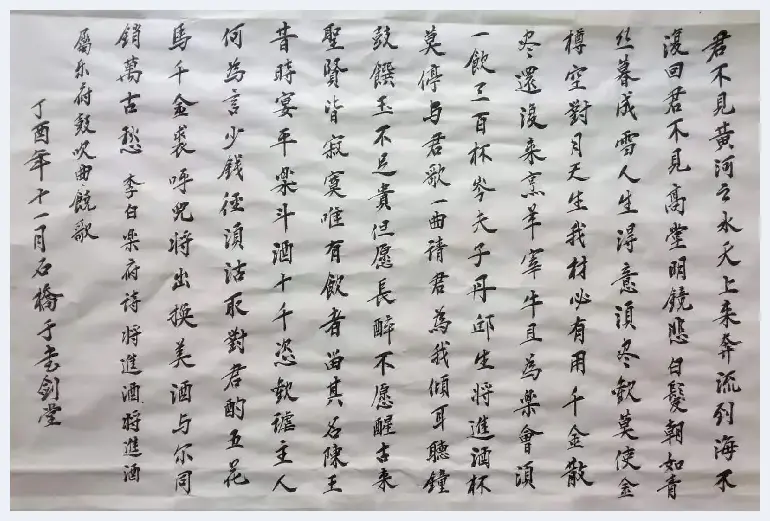 君不見黃河之水天上来奔流到海不
復回君不見高堂明镜悲白髮朝如青
丝暮成雪人生得意須尽歡莫使金
樽空對月天生我材必有用千金散
尽還復来烹羊宰牛且為樂會須
一飲三百杯岑夫子丹邱生将進酒杯
莫停与君歌一曲请君為我倾耳聽鐘
鼓饌玉不足貴但愿長醉不愿醒古来
聖賢皆寂寞唯有飲者留其名陳王
昔時宴平樂斗酒十千恣歡謔主人
何為言少钱径須沽取對君酌五花
馬千金裘呼児将出换美酒与尔同
銷萬古愁 李白樂府诗将進酒将進酒
屬乐府鼓吹曲饒歌
丁酉年十一月石橋于書剑堂